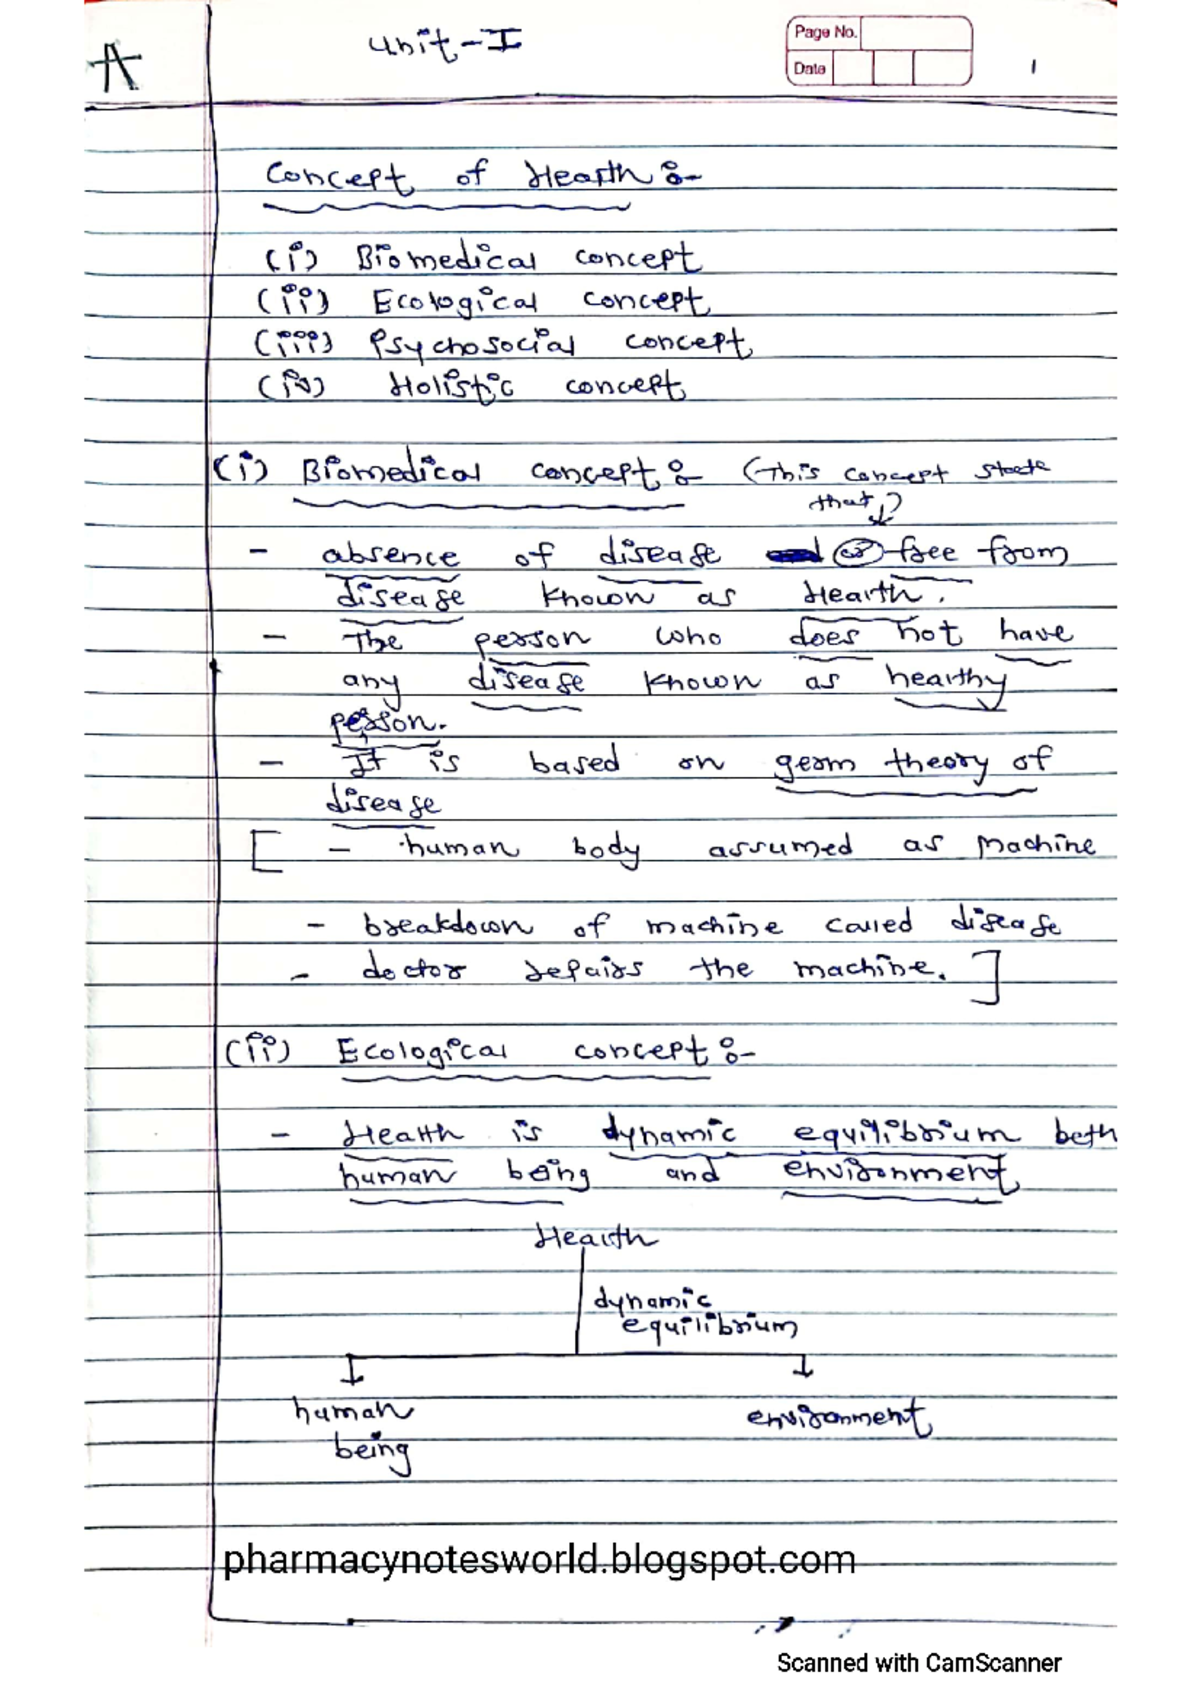 A
Unit-I
Page No.
Date
1
Concept of Health :-
(i) Biomedical concept
(ii) Ecological concept
(iii) Psychosocial concept
(iv) Holistic concept
(i) Biomedical concept :- (This concept state
that)
- absence of disease or free from
disease known as Health.
- The person who does not have
any disease known as healthy
person.
- It is based on germ theory of
disease
[ - human body assumed as machine
- breakdown of machine called disease
- doctor repairs the machine. ]
(ii) Ecological concept :-
- Health is dynamic equilibrium beth
human being and environment
Health
dynamic
equilibrium
human
being
environment
pharmacynotesworld.blogspot.com
Scanned with CamScanner